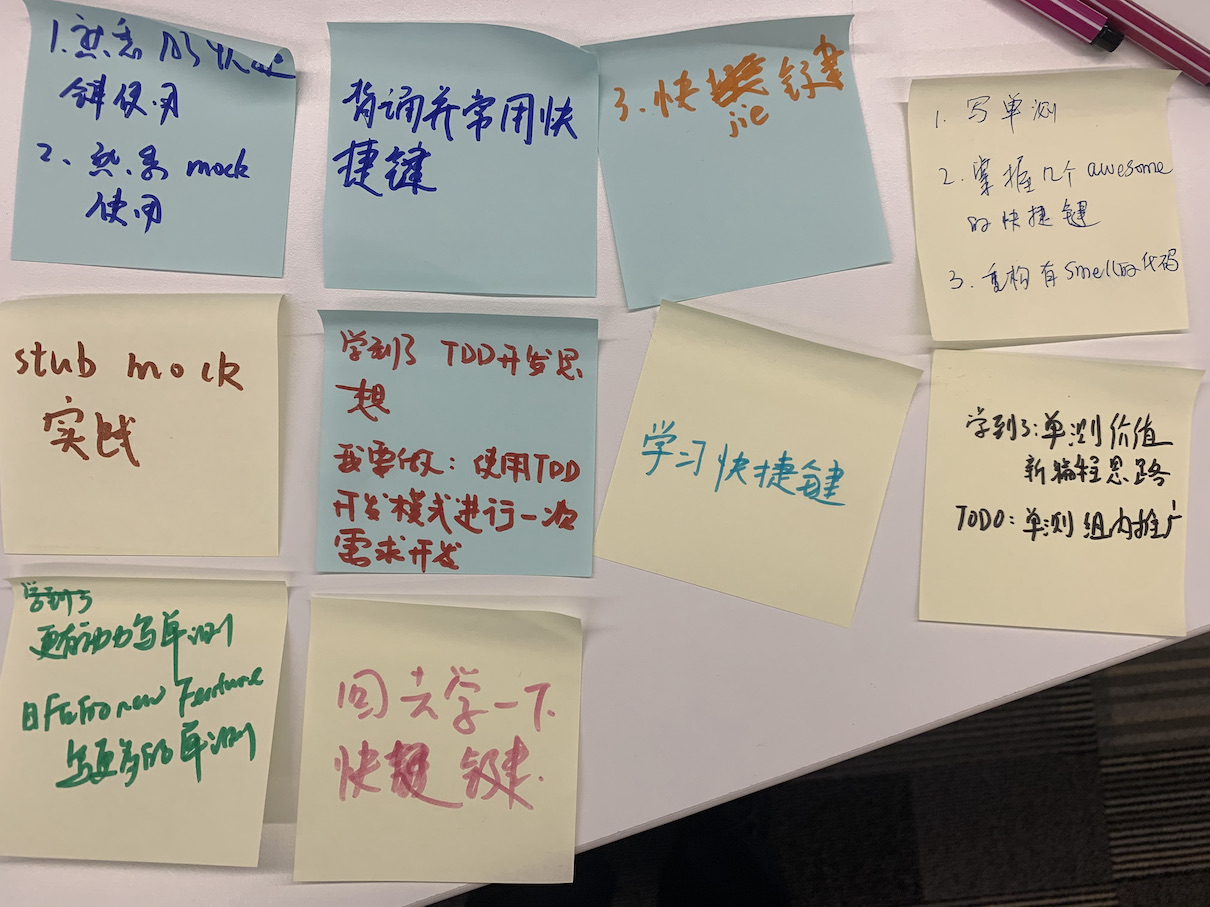 1. 熟悉 的快捷
键使用
2、熟悉 mock
使用
背诵并常用快
捷键
3. 快 键
jie
1. 写单测
2. 掌握几个 awesome
的快捷键
3. 重构有smell的代码
stub mock
实践
学到了 TDD开发思
想
我要做：使用TDD
开发模式进行一次
需求开发
学习快捷键
学到了:单测价值
新编程思路
TODO: 单测组内推广
学到了
更有动力写单测
new Feature
单测
回去学一下
快捷键.